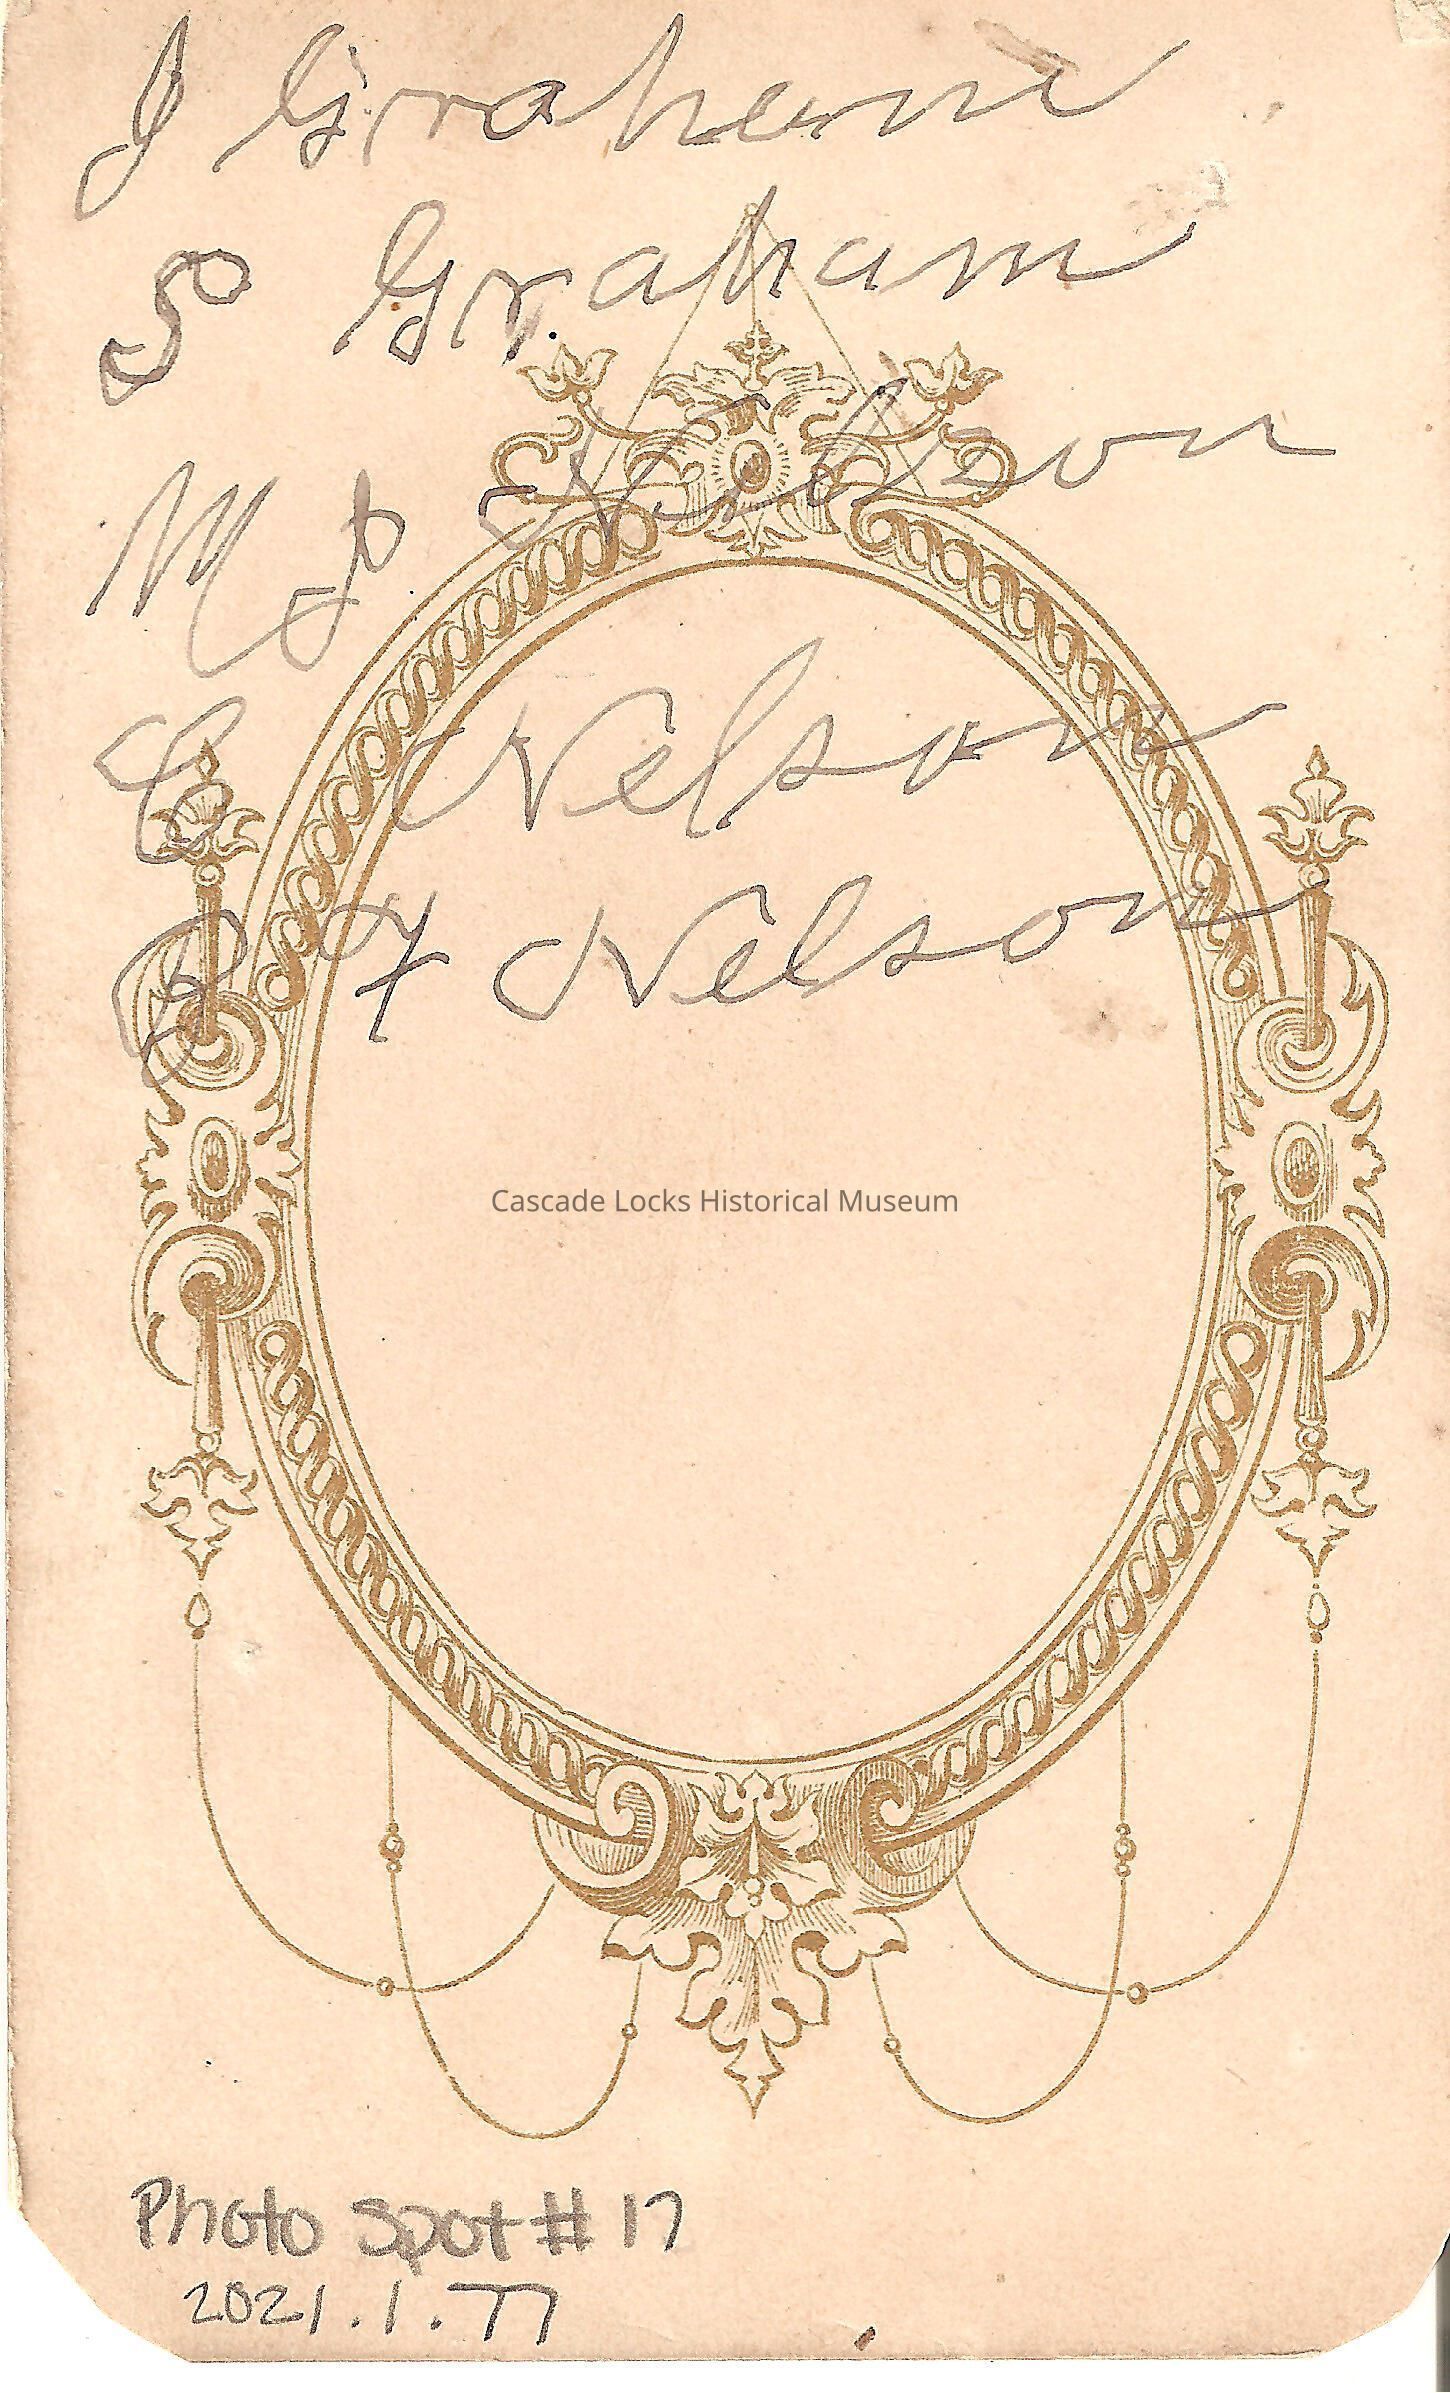 J Graham
S Graham
M J Nelson
C Nelson
Nelson
Cascade Locks Historical Museum
Photo Spot # 17
2021.1.77